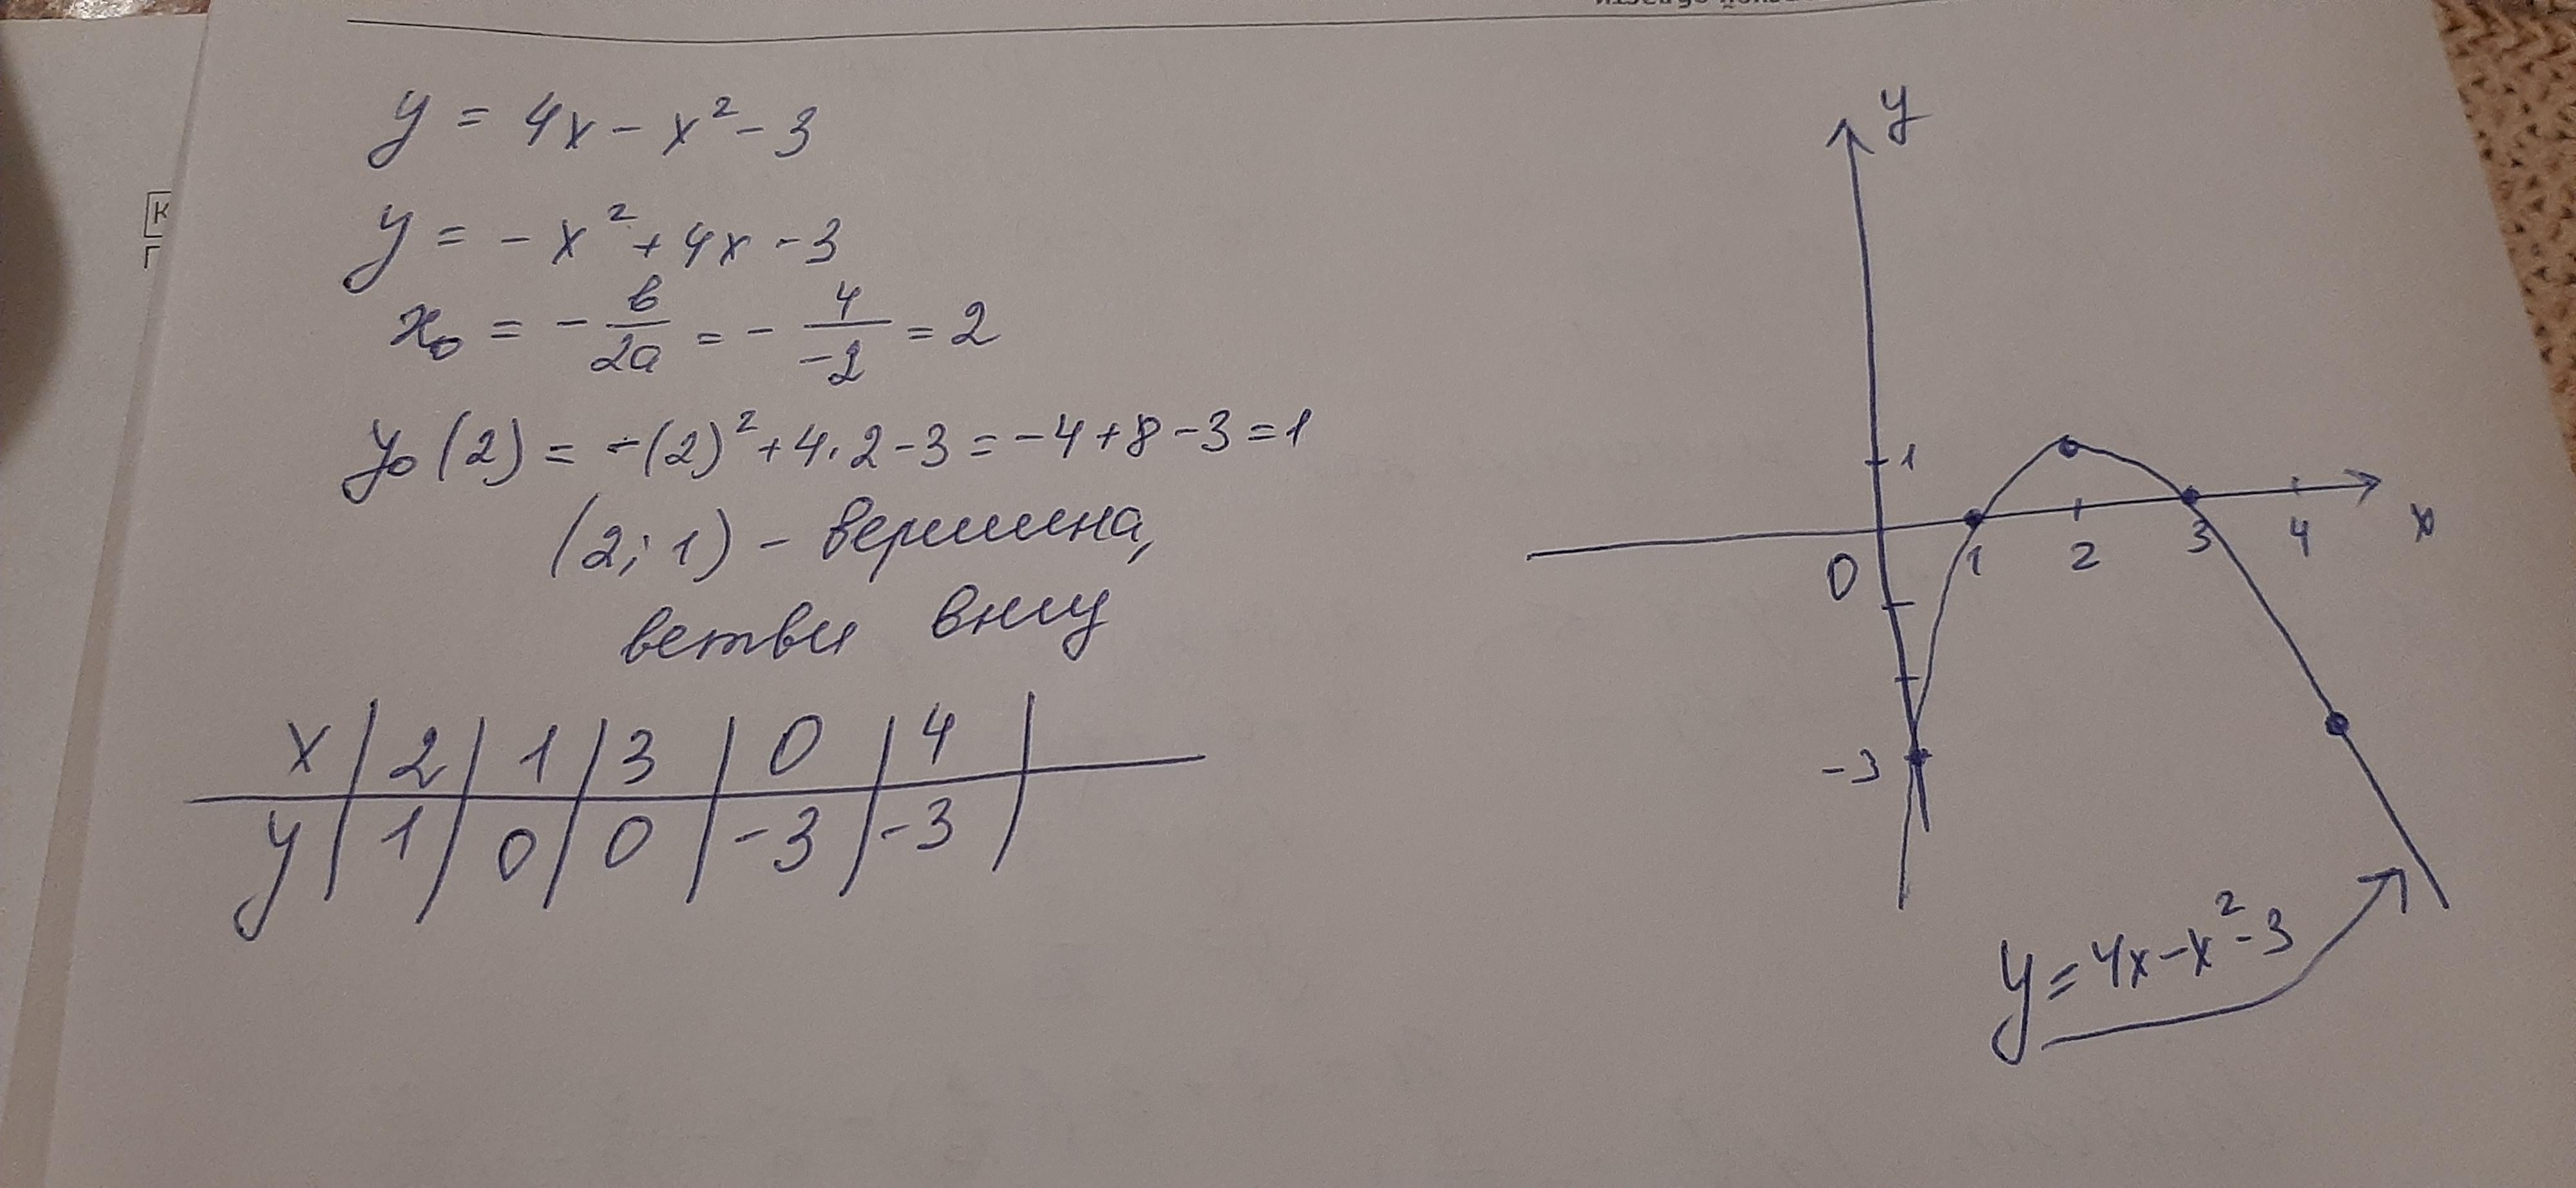 y = 4x - x² - 3
y = - x² + 4x - 3
x₀ = - в/2a = - 4/-2 = 2
y₀(2) = -(2)² + 4·2 - 3 = -4 + 8 - 3 = 1
(2; 1) - вершина,
ветви вниз
x | 2 | 1 | 3 | 0 | 4 |
y | 1 | 0 | 0 | -3 | -3 |
y
1
0 1 2 3 4 x
-3
y = 4x - x² - 3
К
Г